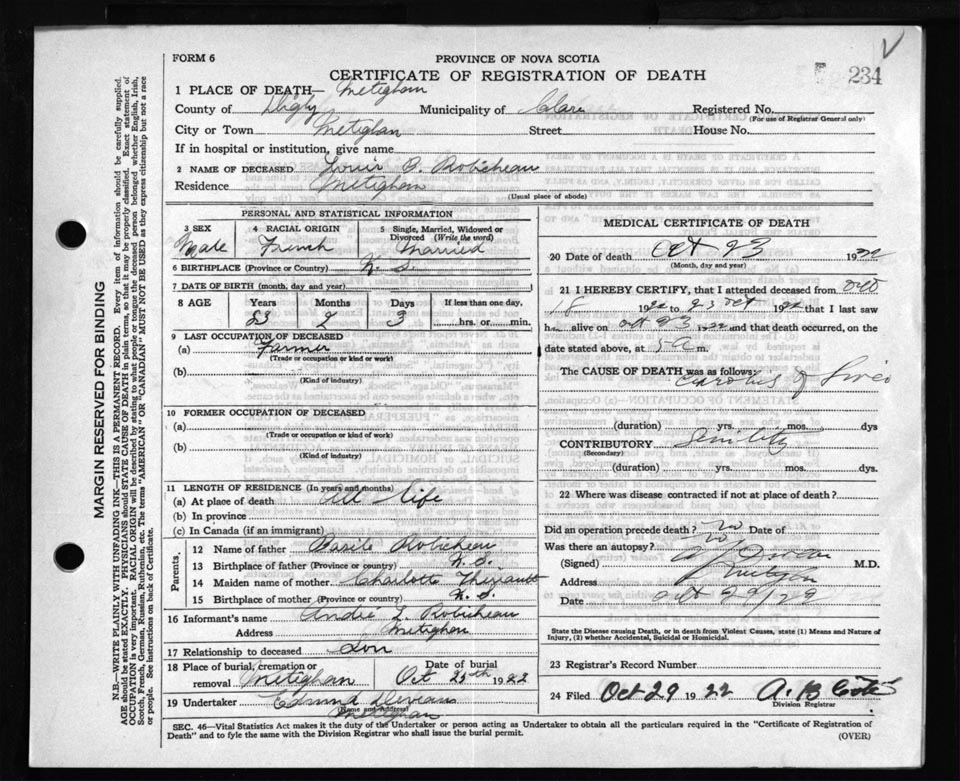 FORM 6
PROVINCE OF NOVA SCOTIA
CERTIFICATE OF REGISTRATION OF DEATH
234
1 PLACE OF DEATH— Metighan
County of Digby Municipality of Clare Registered No.
(For use of Registrar General only)
City or Town Metighan Street House No.
If in hospital or institution, give name
2 NAME OF DECEASED Louis B. Robicheau
Residence Metighan
(Usual place of abode)
PERSONAL AND STATISTICAL INFORMATION
3 SEX 4 RACIAL ORIGIN 5 Single, Married, Widowed or Divorced (Write the word)
Male French Married
6 BIRTHPLACE (Province or Country) N. S.
7 DATE OF BIRTH (month, day and year)
8 AGE Years Months Days If less than one day,
2 3 hrs. or min.
9 LAST OCCUPATION OF DECEASED
(a) Farmer
(Trade or occupation or kind or work)
(b)
(Kind of industry)
10 FORMER OCCUPATION OF DECEASED
(a)
(Trade or occupation or kind of work)
(b)
(Kind of industry)
11 LENGTH OF RESIDENCE (In years and months)
(a) At place of death all life
(b) In province
(c) In Canada (if an immigrant)
Parents
12 Name of father Basile Robicheau
13 Birthplace of father (Province or country) N. S.
14 Maiden name of mother Charlotte Theriault
15 Birthplace of mother (Province or country) N. S.
16 Informant's name André L. Robicheau
Address Metighan
17 Relationship to deceased Son
18 Place of burial, cremation or removal Metighan Date of burial Oct 25th 1922
19 Undertaker Edmund Deveau
(Name and Address)
Metighan
MEDICAL CERTIFICATE OF DEATH
20 Date of death Oct 23 1922
(Month, day and year)
21 I HEREBY CERTIFY, that I attended deceased from Oct
18 1922 to 23 Oct 1922 that I last saw
h alive on Oct 23 1922 and that death occurred, on the
date stated above, at 5 a m.
The CAUSE OF DEATH was as follows:
(duration) yrs. mos. dys
CONTRIBUTORY Senility
(Secondary)
(duration) yrs. mos. dys.
22 Where was disease contracted if not at place of death?
Did an operation precede death? no Date of
Was there an autopsy? no
(Signed) M.D.
Address
Date Oct 29/22
State the Disease causing Death, or in death from Violent Causes, state (1) Means and Nature of Injury, (2) whether Accidental, Suicidal or Homicidal.
23 Registrar's Record Number
24 Filed Oct 29 1922 A. B.
Division Registrar
SEC. 46—Vital Statistics Act makes it the duty of the Undertaker or person acting as Undertaker to obtain all the particulars required in the "Certificate of Registration of
Death" and to fyle the same with the Division Registrar who shall issue the burial permit.
(OVER)
MARGIN RESERVED FOR BINDING
N.B.—WRITE PLAINLY WITH UNFADING INK—THIS IS A PERMANENT RECORD. Every item of information should be carefully supplied.
AGE should be stated EXACTLY. PHYSICIANS should STATE CAUSE OF DEATH in plain terms, so that it may be properly classified. Exact statement of
OCCUPATION is very important. RACIAL ORIGIN will be described by stating to what people or tongue the deceased person belonged whether English, Irish,
Scotch, French, German, Russian, Ruthenian, etc. The terms "AMERICAN" or "CANADIAN" MUST NOT BE USED as they express citizenship but not a race
or people. See instructions on back of Certificate.